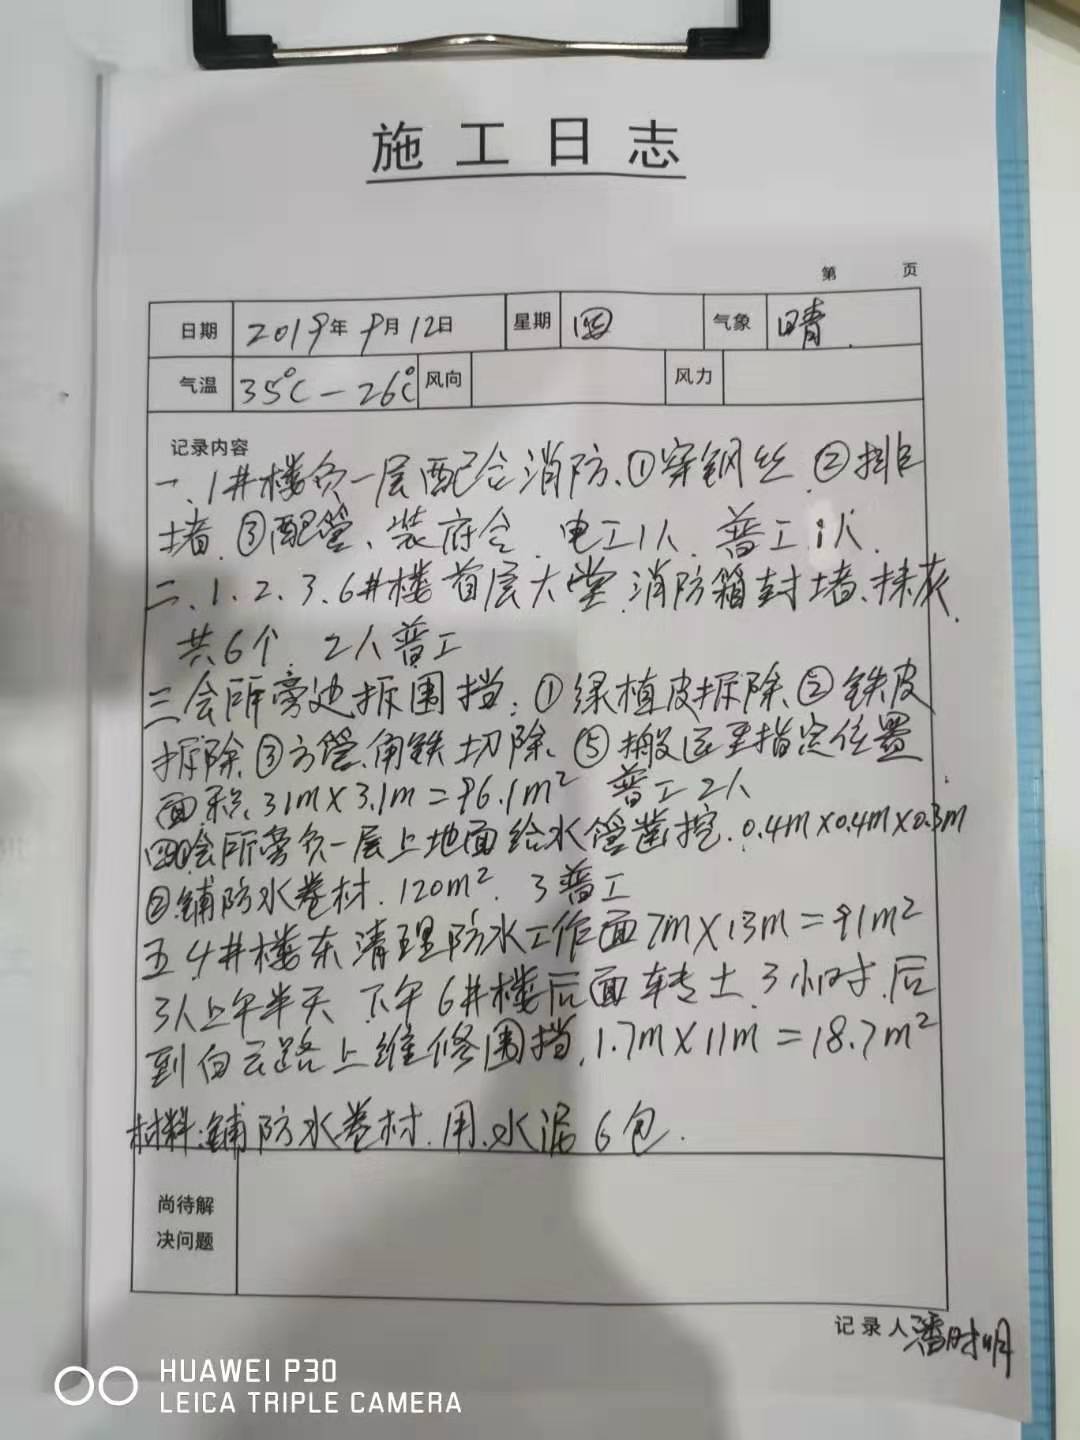 施工日志
第 页
日期 2019年9月12日 星期 四 气象 晴.
气温 35℃-26℃ 风向 风力
记录内容
一、1井楼负一层配合消防、①穿钢丝.②排
堵.③配管、装 电工1人.普工1人.
二、1、2、3、6井楼首层大堂.消防箱封堵、抹灰.
共6个. 2人普工
三会所旁边拆围挡:①绿植皮拆除、②铁皮
拆除③方管、角铁切除、⑤搬运至指定位置
面积、31m×3.1m=96.1m² 普工2人
四①会所旁负一层上地面给水管凿挖.0.4m×0.4m×0.3m
②铺防水卷材.120m². 3普工
五4井楼东清理防水工作面7m×13m=91m²
3人上午半天.下午6井楼后面转土.3小时.后
到白云路上维修围挡.1.7m×11m=18.7m²
材料:铺防水卷材.用.水泥6包.
尚待解
决问题
记录人潘时明
HUAWEI P30
LEICA TRIPLE CAMERA